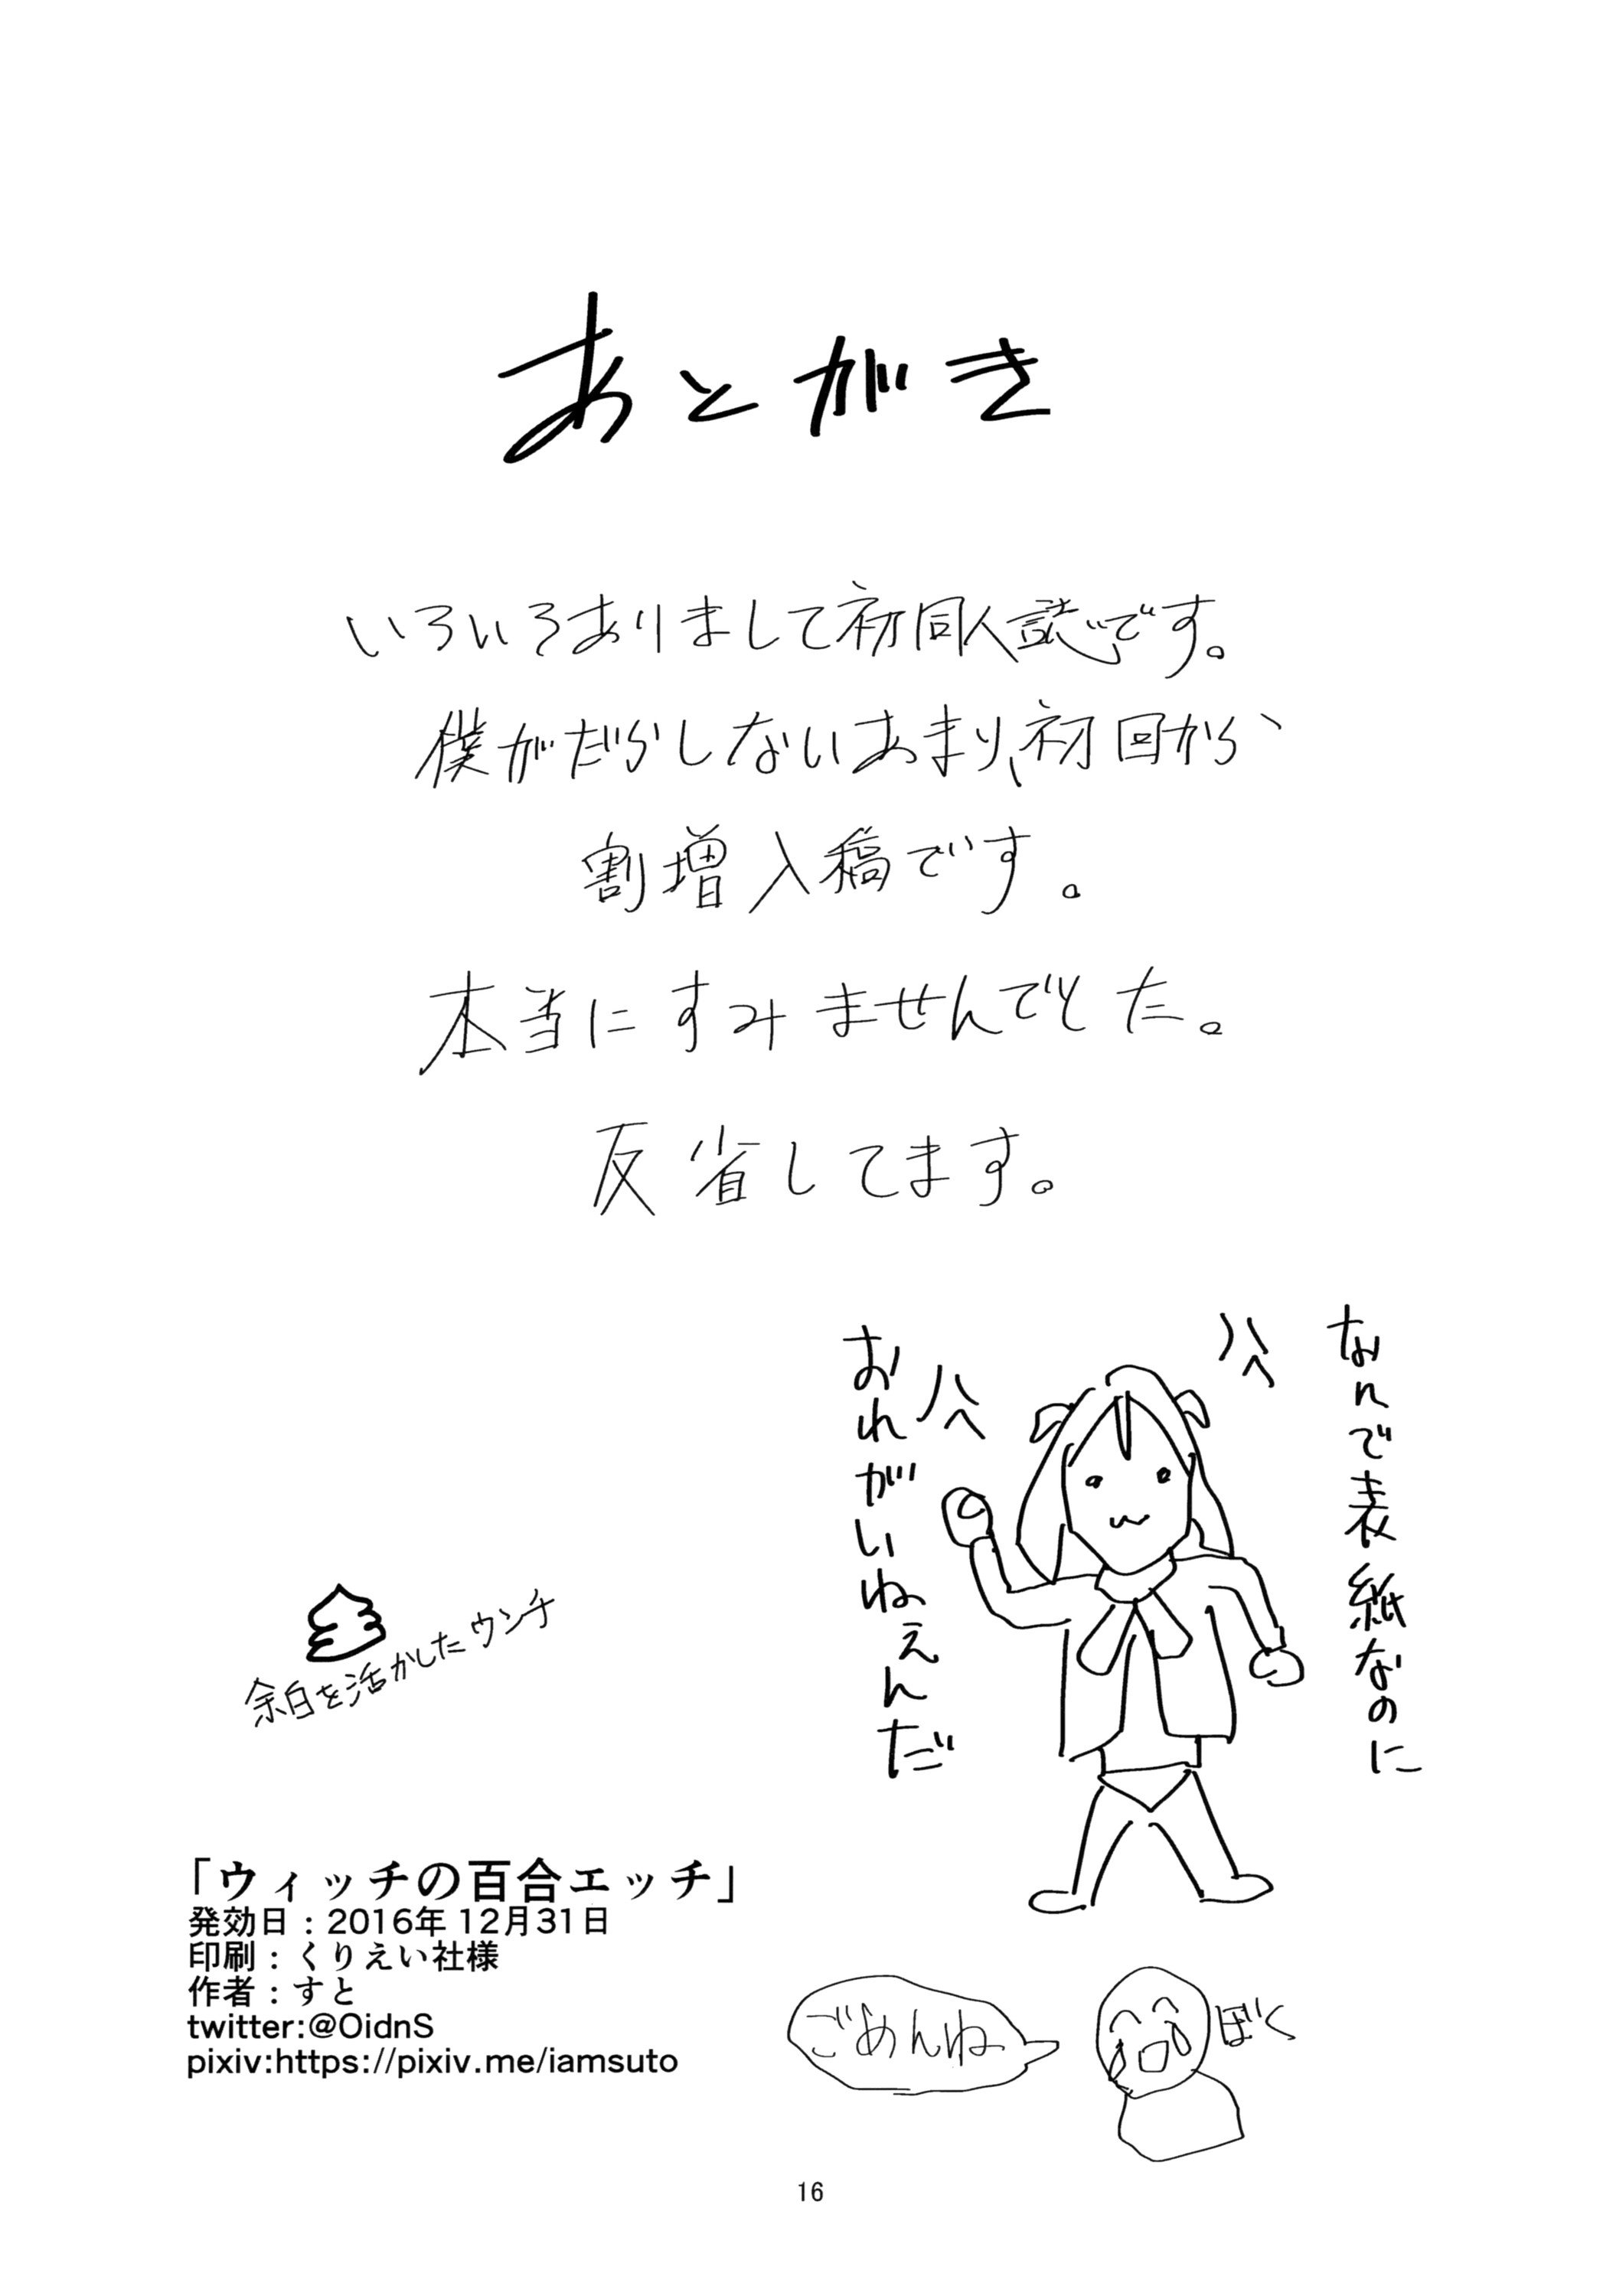 あとがき
いろいろありまして初同人誌です。
僕がだらしないあまり、初回から、
割増入稿です。
本当にすみませんでした。
反省してます。
なんで表紙なのに
おれがいねぇんだ
余白を活かしたウンチ
「ウィッチの百合エッチ」
発効日：2016年12月31日
印刷：くりえい社様
作者：すと
twitter:@OidnS
pixiv:https://pixiv.me/iamsuto
ごめんね
ぼく
16